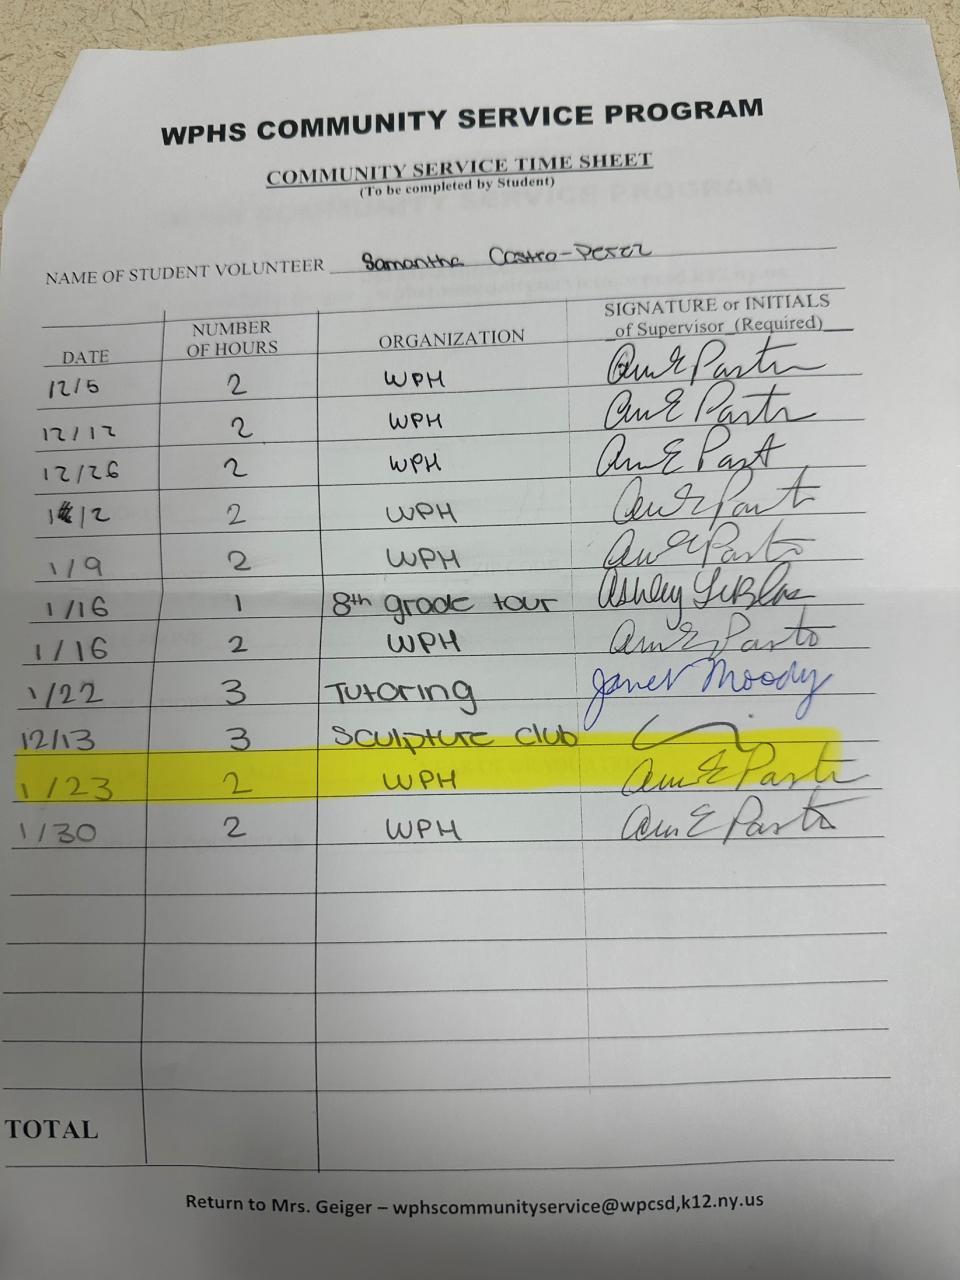 WPHS COMMUNITY SERVICE PROGRAM
COMMUNITY SERVICE TIME SHEET
(To be completed by Student)
NAME OF STUDENT VOLUNTEER Samantha Castro-Perez
DATE NUMBER OF HOURS ORGANIZATION SIGNATURE or INITIALS of Supervisor (Required)
12/5 2 WPH
12/12 2 WPH
12/26 2 WPH
1/2 2 WPH
1/9 2 WPH
1/16 1 8th grade tour Ashley
1/16 2 WPH
1/22 3 Tutoring Janet Moody
12/13 3 Sculpture club
1/23 2 WPH
1/30 2 WPH
TOTAL
Return to Mrs. Geiger – wphscommunityservice@wpcsd,k12.ny.us